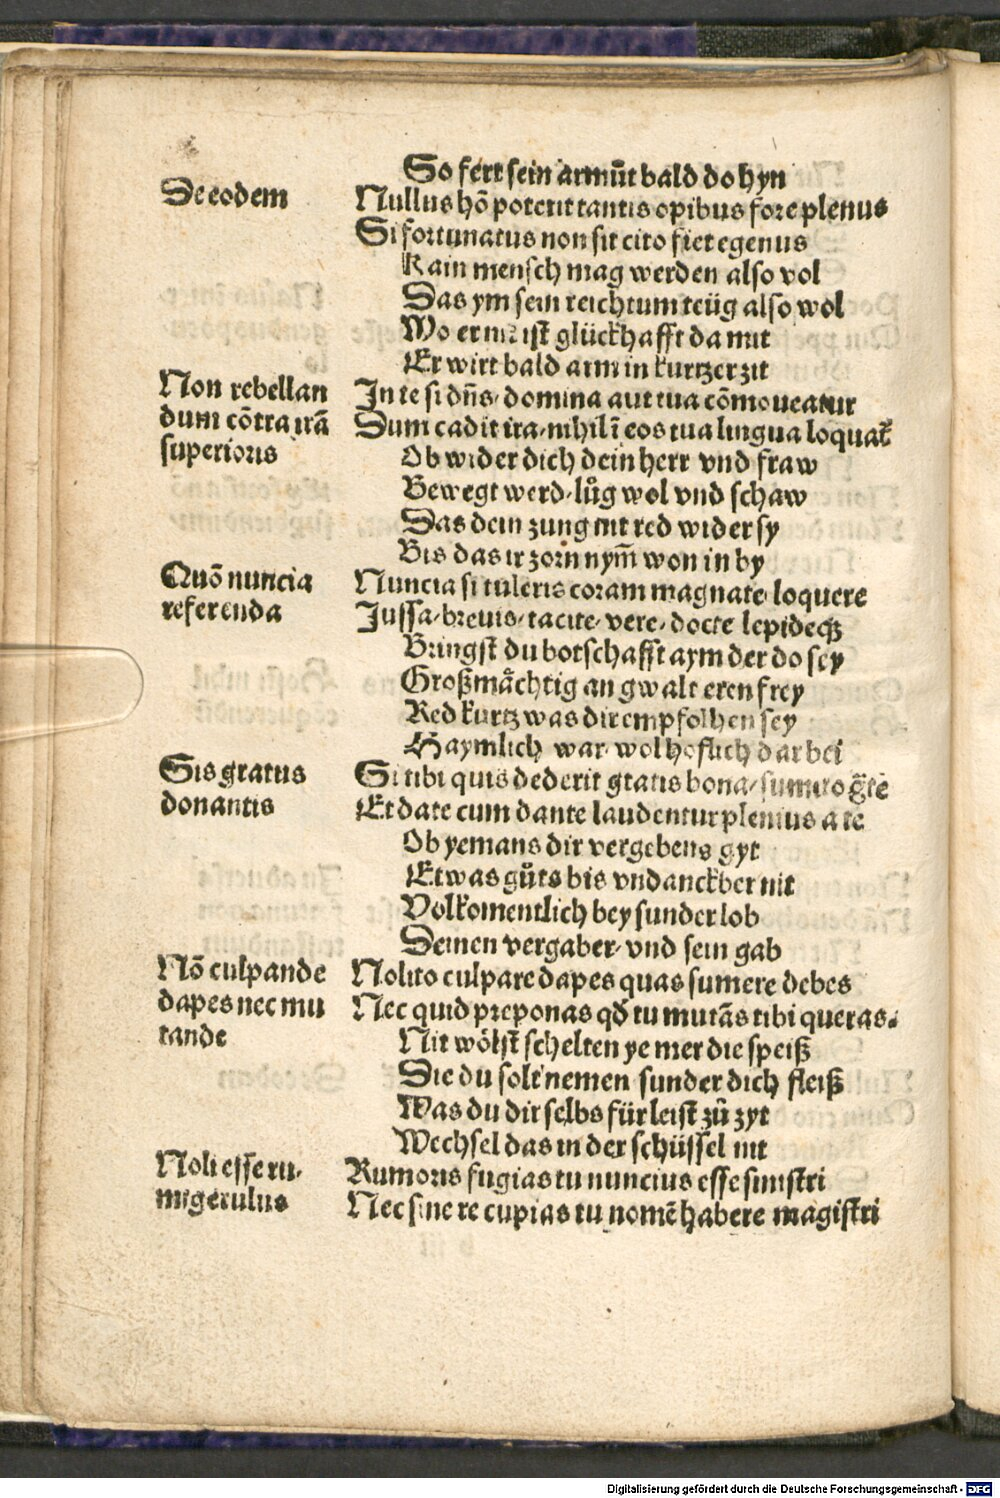 So fert sein armůt bald do hyn
De eodem
Nullus hō poterit tantis opibus fore plenus
Si fortunatus non sit cito fiet egenus
Kain mensch mag werden also vol
Das ym sein reichtum teüg also wol
Wo er nit ist glückhafft da mit
Er wirt bald arm in kurtzer zit
Non rebellan
dum cōtra irā
superioris
In te si dn̄s, domina aut tua cōmoueatur
Dum cadit ira, nihil ī eos tua lingua loquat̄
Ob wider dich dein herr vnd fraw
Bewegt werd, lůg wol vnd schaw
Das dein zung nit red wider sy
Bis das ir zorn nym̄ won in by
Quō nuncia
referenda
Nuncia si tuleris coram magnate, loquere
Jussa, breuis, tacite, vere, docte lepideqꝫ
Bringst du botschafft aym der do sey
Großmåchtig an gwalt eren frey
Red kurtz was dir empfolhen sey
Haymlich war wol hoflich dar bei
Sis gratus
donantis
Si tibi quis dederit gratis bona, sumito
Et date cum dante laudentur plenius a te
Ob yemans dir vergebens gyt
Etwas gůts bis vndanckber nit
Volkomentlich bey sunder lob
Deinen vergaber, vnd sein gab
Nō culpande
dapes nec mu
tande
Nolito culpare dapes quas sumere debes
Nec quid preponas qđ tu mutās tibi queras.
Nit wöllst schelten ye mer die speiß
Die du solt nemen sunder dich fleiß
Was du dir selbs für leist zů zyt
Wechsel das in der schüssel nit
Noli esse ru,
migerulus
Rumoris fugias tu nuncius esse sinistri
Nec sine re cupias tu nomē habere magistri
Digitalisierung gefördert durch die Deutsche Forschungsgemeinschaft - DFG